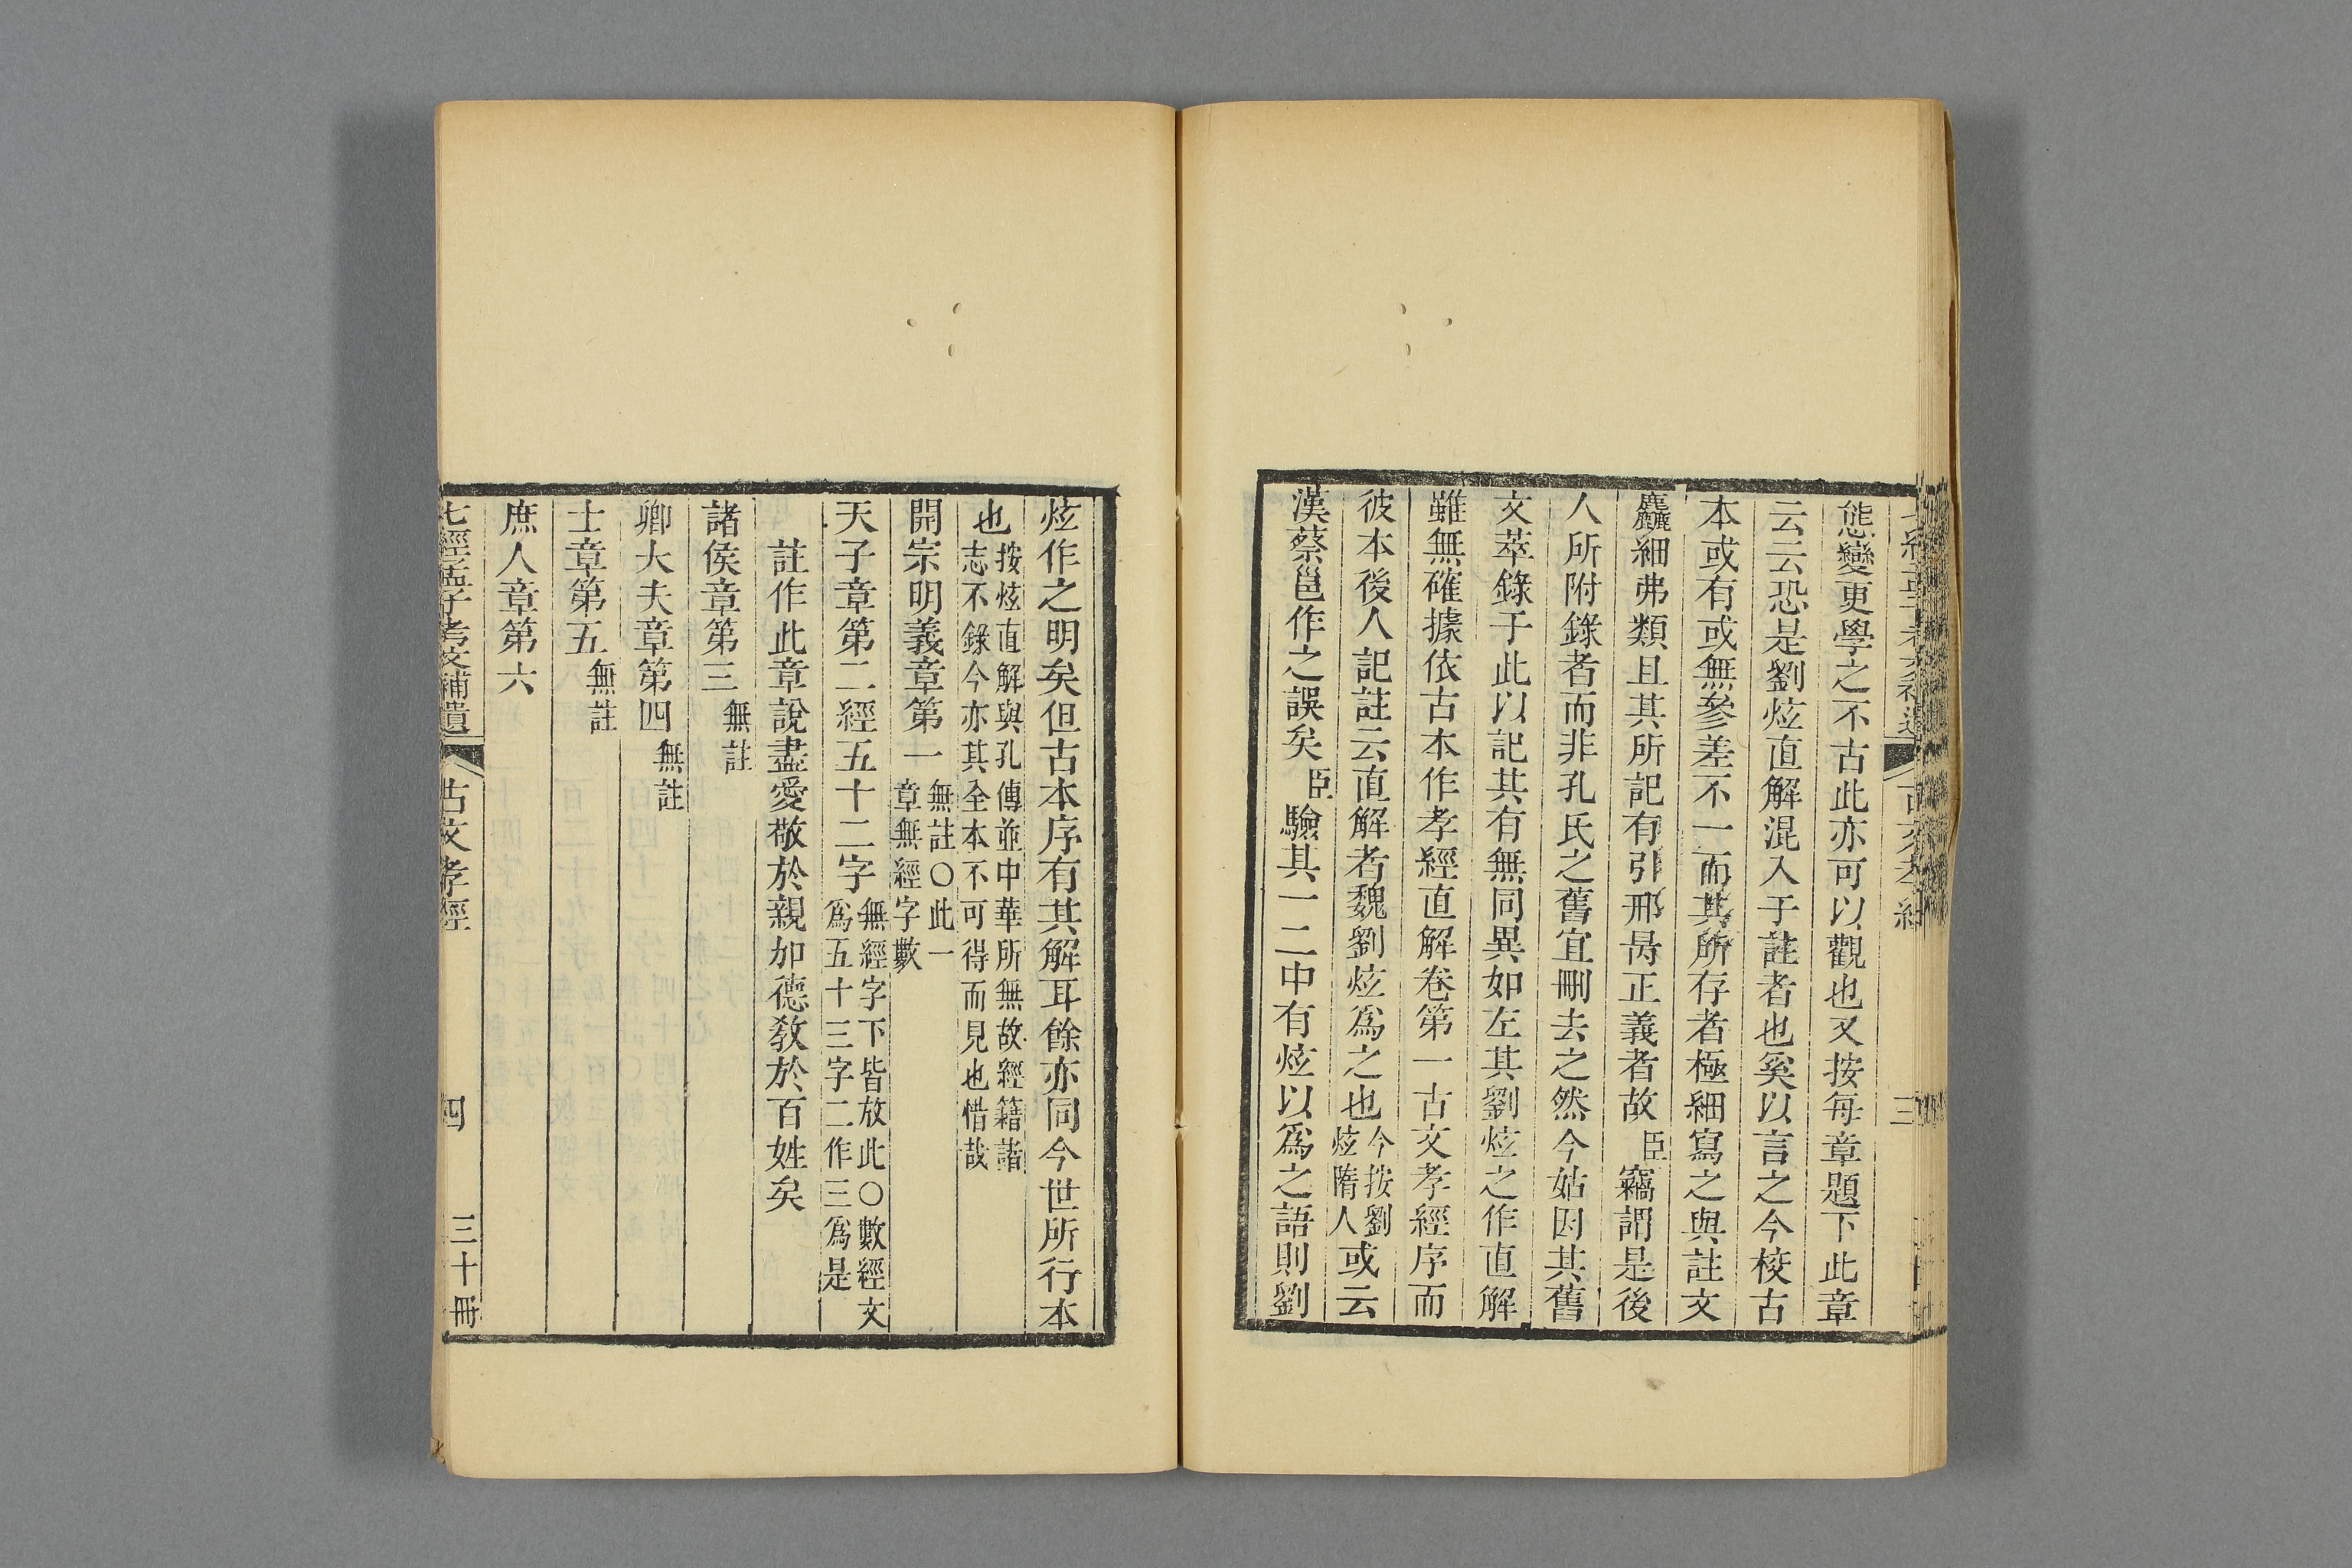 態變更學之不古此亦可以觀也又按每章題下此章
云云恐是劉炫直解混入于註者也奚以言之今校古
本或有或無參差不一而其所存者極細寫之與註文
麤細弗類且其所記有引邢昺正義者故臣竊謂是後
人所附錄者而非孔氏之舊宜刪去之然今姑因其舊
文萃錄于此以記其有無同異如左其劉炫之作直解
雖無確據依古本作孝經直解卷第一古文孝經序而
彼本後人記註云直解者魏劉炫爲之也今按劉炫隋人或云
漢蔡邕作之誤矣臣驗其一二中有炫以爲之語則劉
炫作之明矣但古本序有其解耳餘亦同今世所行本
也按炫直解與孔傳並中華所無故經籍諸志不錄今亦其全本不可得而見也惜哉
開宗明義章第一無註〇此一章無經字數
天子章第二經五十二字無經字下皆放此〇數經文爲五十三字二作三爲是
註作此章說盡愛敬於親加德敎於百姓矣
諸侯章第三無註
卿大夫章第四無註
士章第五無註
庶人章第六
七經孟子考文補遺 古文孝經 四 三十冊